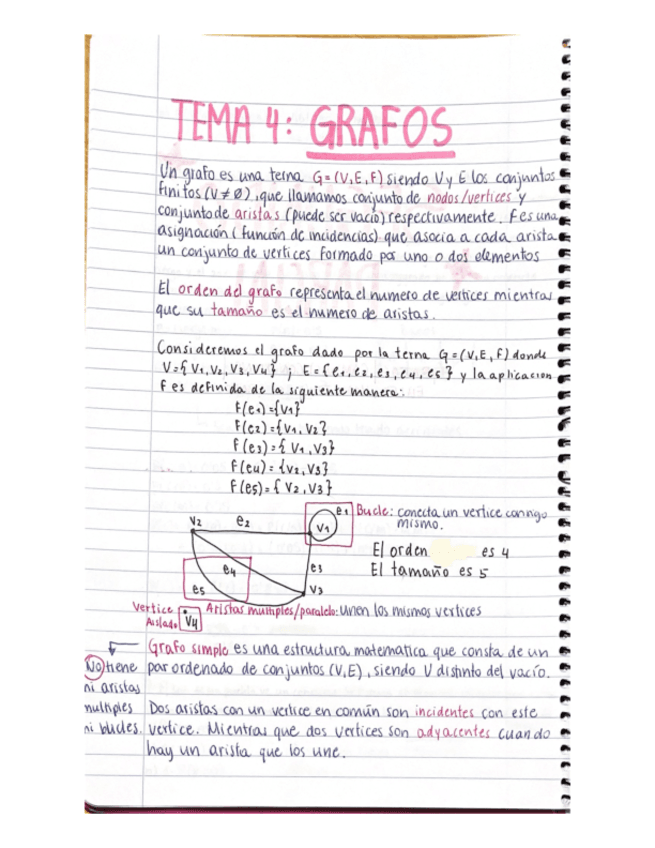 TEMA 4: GRAFOS
Un grafo es una terna G=(V,E,F) siendo V y E los conjuntos
finitos (V≠Ø), que llamamos conjunto de nodos/vertices y
conjunto de aristas (puede ser vacio) respectivamente. F es una
asignación (función de incidencias) que asocia a cada arista
un conjunto de vertices formado por uno o dos elementos
El orden del grafo representa el numero de vertices mientras
que su tamaño es el numero de aristas.
Consideremos el grafo dado por la terna G=(V,E,F) donde
V={V1,V2,V3,V4} ; E={e1,e2,e3,e4,e5} y la aplicacion
F es definida de la siguiente manera:
F(e1)={V1}
F(e2)={V1,V2}
F(e3)={V1,V3}
F(e4)={V2,V3}
F(e5)={V2,V3}
V2 e2 e1 V1
Bucle: conecta un vertice consigo
mismo.
El orden es 4
El tamaño es 5
e4 e3
e5 V3
Vertice Aislado V4
Aristas multiples/paralelo: unen los mismos vertices
Grafo simple es una estructura matematica que consta de un
par ordenado de conjuntos (V,E), siendo V distinto del vacío.
No tiene
ni aristas
multiples
ni bucles.
Dos aristas con un vertice en común son incidentes con este
vertice. Mientras que dos vertices son adyacentes cuando
hay un arista que los une.